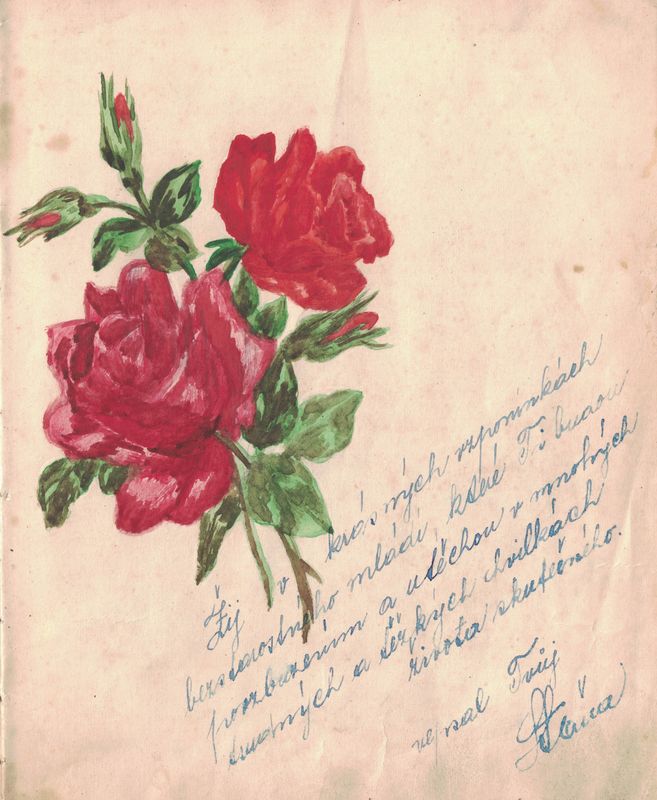 Žij v krásných vzpomínkách
bezstarostného mládí, které Ti budou
povzbuzením a útěchou v mnohých
smutných a těžkých chvilkách
života skutečného.
vepsal Tvůj